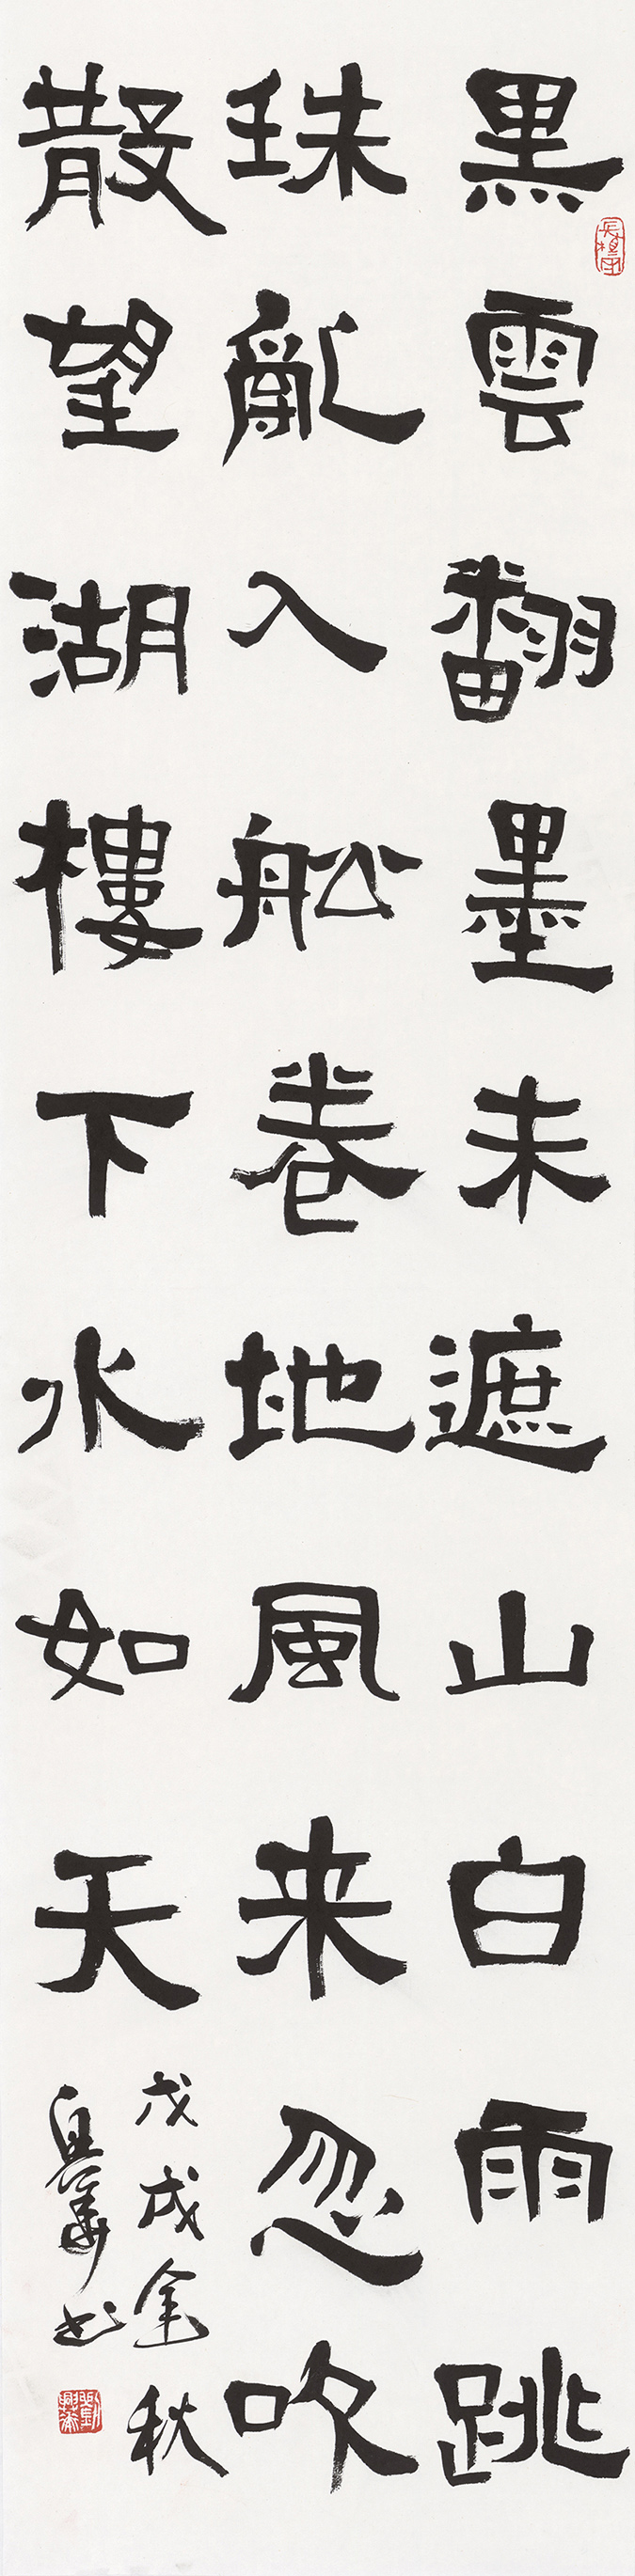 黑雲翻墨未遮山白雨跳
珠亂入船卷地風来忽吹
散望湖樓下水如天
戊戌金秋